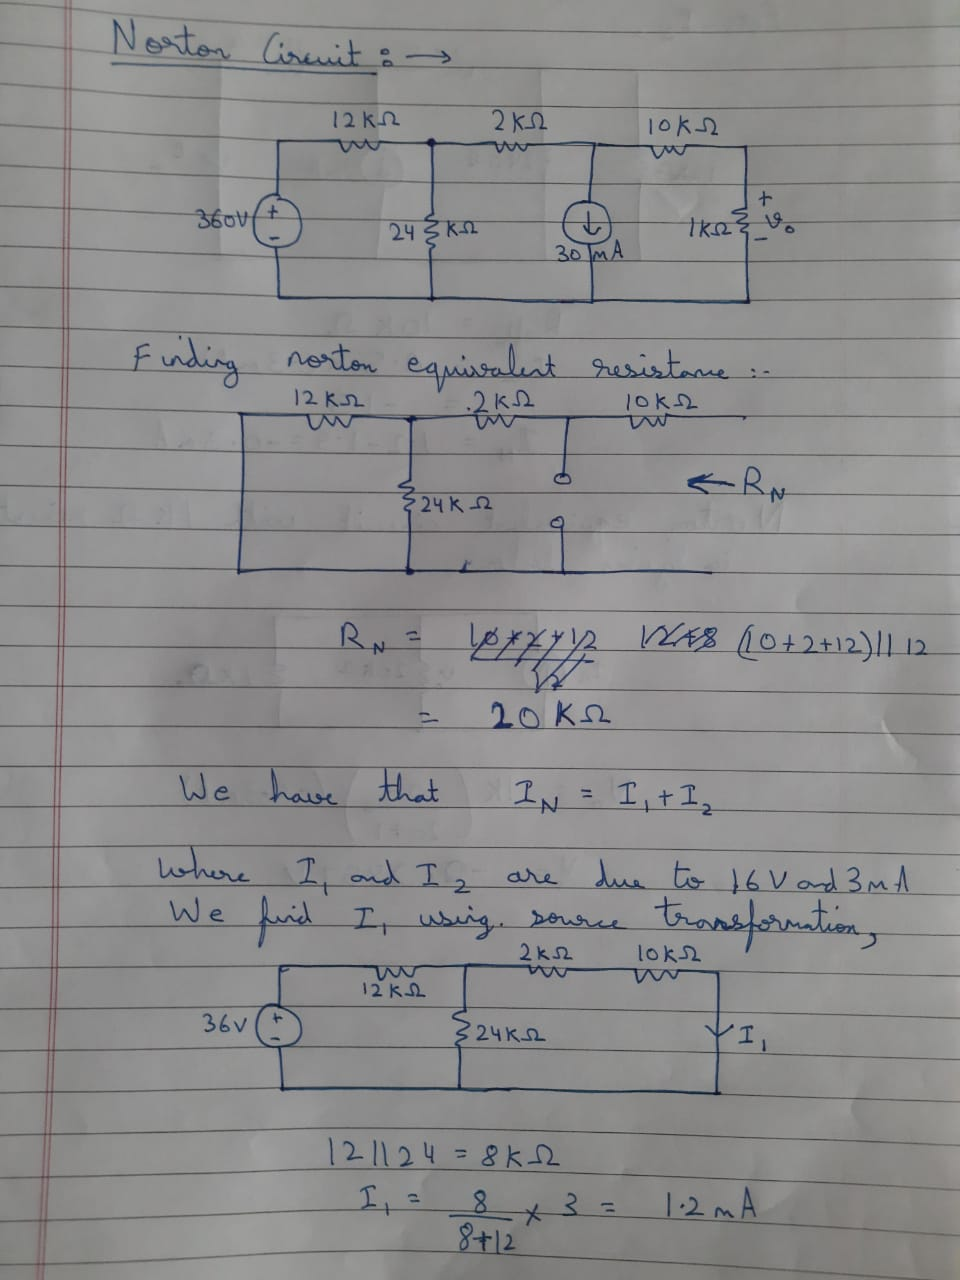 Norton Circuit : →
12KΩ 2KΩ 10KΩ
360V + - 24 KΩ 30 mA 1KΩ + v₀ -
Finding norton equivalent resistance :-
12KΩ 2KΩ 10KΩ
24KΩ ← R_N
R_N = (10+2+12)||12
= 20 KΩ
We have that I_N = I₁ + I₂
where I₁ and I₂ are due to 16V and 3mA
We find I₁ using source transformation,
2KΩ 10KΩ
12KΩ
36V + - 24KΩ I₁
12||24 = 8KΩ
I₁ = 8/(8+12) × 3 = 1.2 mA